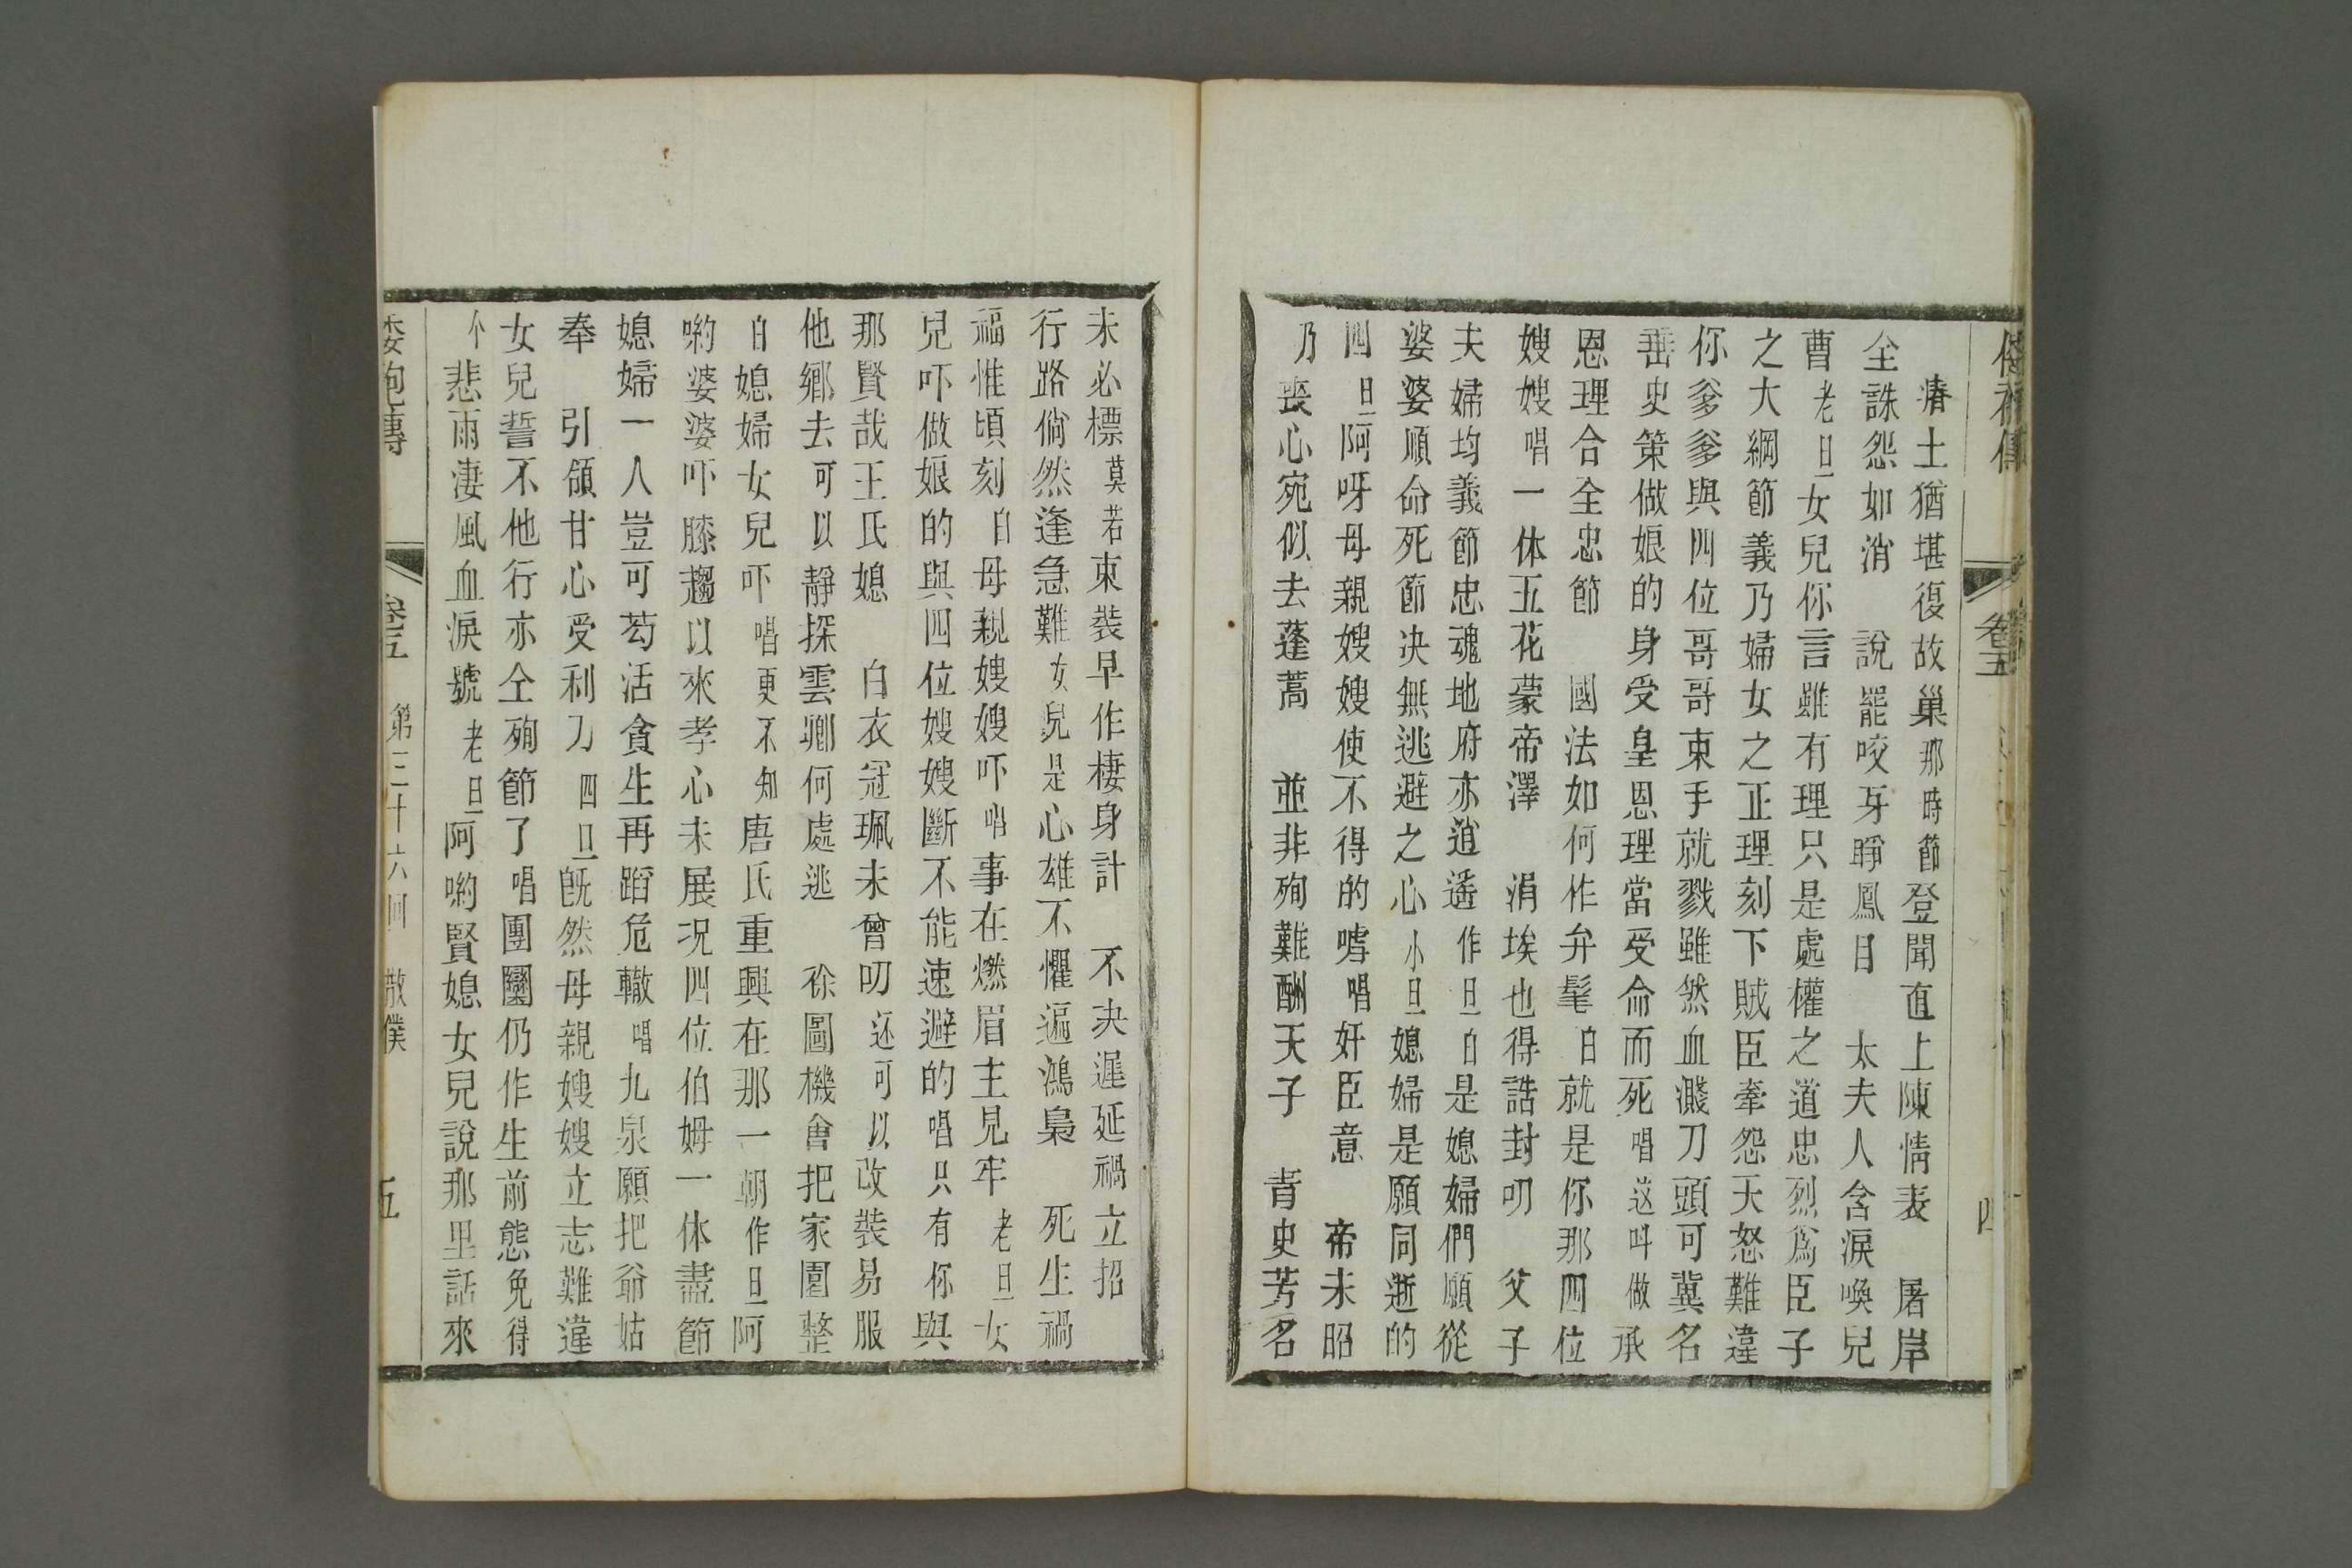 倭袍傳
卷五
四
瘠土猶堪復故巢那時節登聞直上陳情表　屠岸
全誅怨如消　說罷咬牙睜鳳目　太夫人含淚喚兒
曹老旦女兒你言雖有理只是處權之道忠烈爲臣子
之大綱節義乃婦女之正理刻下賊臣牽怨天怒難違
你爹爹與四位哥哥束手就戮雖然血濺刀頭可冀名
垂史策做娘的身受皇恩理當受命而死唱這叫做承
恩理合全忠節　國法如何作弁髦白就是你那四位
嫂嫂唱一休五花蒙帝澤　涓埃也得誥封叨　父子
夫婦均義節忠魂地府亦逍遙作旦白是媳婦們願從
婆婆順命死節决無逃避之心小旦媳婦是願同逝的
四旦阿呀母親嫂嫂使不得的嘘唱奸臣意　帝未昭
乃喪心宛似去蓬蒿　並非殉難酬天子　青史芳名
未必標莫若束裝早作棲身計　不决遲延禍立招
行路倘然逢急難女兒是心雄不懼遍鴻梟　死生禍
福惟頃刻白母親嫂嫂吓唱事在燃眉主見牢老旦女
兒吓做娘的與四位嫂嫂斷不能速避的唱只有你與
那賢哉王氏媳　白衣冠珮未曾叨还可以改裝易服
他鄉去可以靜探雲卿何處逃　徐圖機會把家園整
白媳婦女兒吓唱更不知唐氏重興在那一朝作旦阿
喲婆婆吓膝趨以來孝心未展况四位伯姆一休盡節
媳婦一人豈可茍活貪生再蹈危轍唱九泉願把爺姑
奉　引領甘心受利刀四旦旣然母親嫂嫂立志難違
女兒誓不他行亦仝殉節了唱團圞仍作生前態免得
个悲雨淒風血淚號老旦阿喲賢媳女兒說那里話來
倭袍傳
卷五　第三十六回　散僕
五